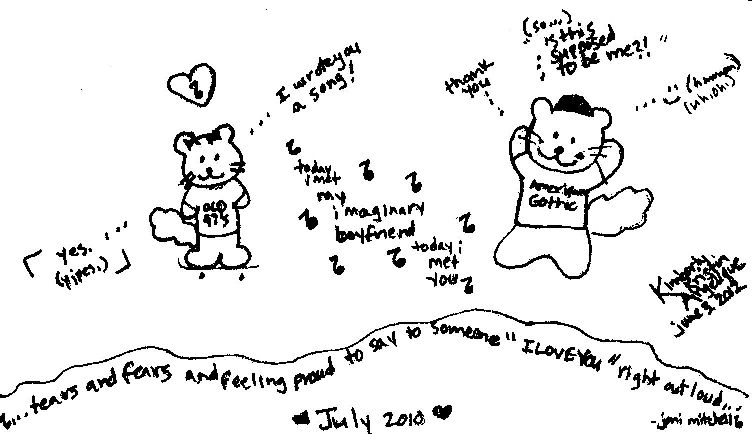 I wrote you
a song!
thank
you
(so...)
"is this
supposed
to be me?!"
(hmmm)
(uh, oh.)
today
i met
my
imaginary
boyfriend
today i
met
you
OLD
97'S
American
Gothic
yes.
(yipes.)
Kimberly
Kristin
Angelique
june 3, 2012
...tears and fears and feeling proud to say to someone "I LOVE YOU" right out loud...
-joni mitchell
July 2010